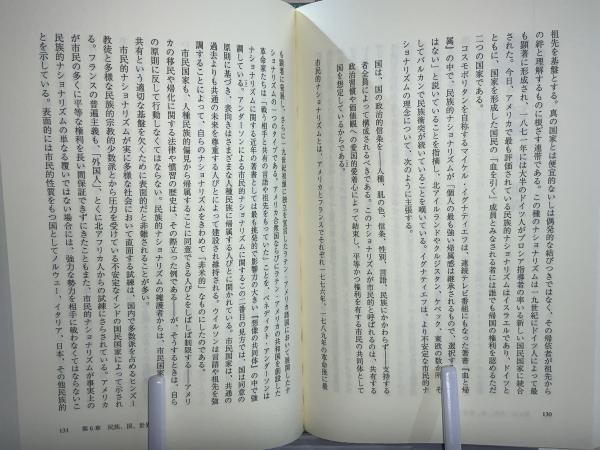 祖先を基盤とする。真の国家とは便宜的ないしは偶発的な結びつきではなく、その帰依者が祖先から
の絆と理解するものに根ざす連帯である。この種のナショナリズムは一九世紀にドイツ人によって最
も顕著に形成され、一八七一年には大半のドイツ人がプロシア指導者の率いる新しい国民国家に統合
された。今日、アメリカで最も評価されている民族的ナショナリズムはイスラエルであり、ドイツと
ともに、国家を形成した国民の「血を引く」成員とみなされる者には誰でも帰国の権利を認めるただ
二つの国家である。
コスモポリタンを自称するマイケル・イグナティエフは、連続テレビ番組ともなった著書『血と帰
属』の中で、民族的ナショナリズムが「個人の最も深い帰属感は継承されるもので、選択する
はない」と説いていることを指摘し、北アイルランドやクルジスタン、ケベック、東欧の数か所、そ
してバルカンで民族衝突が続いていることを嘆いている。イグナティエフは、より不安定な市民的ナ
ショナリズムの理念について、次のように主張する。
国は、国の政治的信条を――人種、肌の色、信条、性別、言語、民族にかかわらず――支持する
者全員によって構成されるべきである。このナショナリズムが市民的と呼ばれるのは、共有する
政治習慣や価値観への愛国的愛着心によって結束し、平等かつ権利を有する市民の共同体として
国を想定しているからである。
市民的ナショナリズムとは、アメリカとフランスでそれぞれ一七七六年、一七八九年の革命後に最
130
も顕著に発展し、さらに一九世紀初頭に独立を宣言したラテン・アメリカ諸国において展開したナ
ショナリズムの一つのタイプである。アメリカ合衆国ならびにラテン・アメリカの共和国を創設した
革命家たちは「戦う相手と共有の言語や祖先をもっていた」ことを、ベネディクト・アンダーソンは
ナショナリズムに関する近年の著書としては最も挑発的で影響力の大きい『想像の共同体』の中で強
調している。アンダーソンによる市民的ナショナリズムに関するこの二番目の見方では、国は同意の
原則に基づき、表向きはさまざまな人種民族に帰属する人びとに開かれている。市民国家は、共通の
過去よりも共通の未来を尊重する人びとによって建設され維持される。ウイルソンは言語や祖先を強
調することによって、自らのナショナリズムをきわめて「非米的」なものにしたのである。
市民国家も、人種民族的偏見から帰属することに同意できる人びとをしばしば制限する――アメリ
カの移民や帰化に関する法律や慣習の歴史は、その際立った例である――が、そうするときは、自ら
の原則に反して行動しなくてはならない。民族的ナショナリズムの擁護者からは、市民国家
共有という適切な基盤を欠くために表面的だと非難されることが多い。
市民的ナショナリズムが実に多様な社会において直面する試練は、国内で多数派を占めるヒンズー
教徒と多様な民族的宗教的少数派とから圧力を受けている不安定なインドの国民国家によって示され
る。フランスの普遍主義も、「外国人」、とくに北アフリカ人からの試練にさらされている。アメリカ
が市民の多くに平等な権利を長い間保証できずにきたこともまた、市民的ナショナリズムが事実上の
民族的ナショナリズムの単なる覆いではない場合には、強力な勢力を相手に戦わなくてはならないこ
とを示している。表面的には市民的性質をもつ国としてノルウェー、イタリア、日本、その他民族的
131 第6章 民族、国、